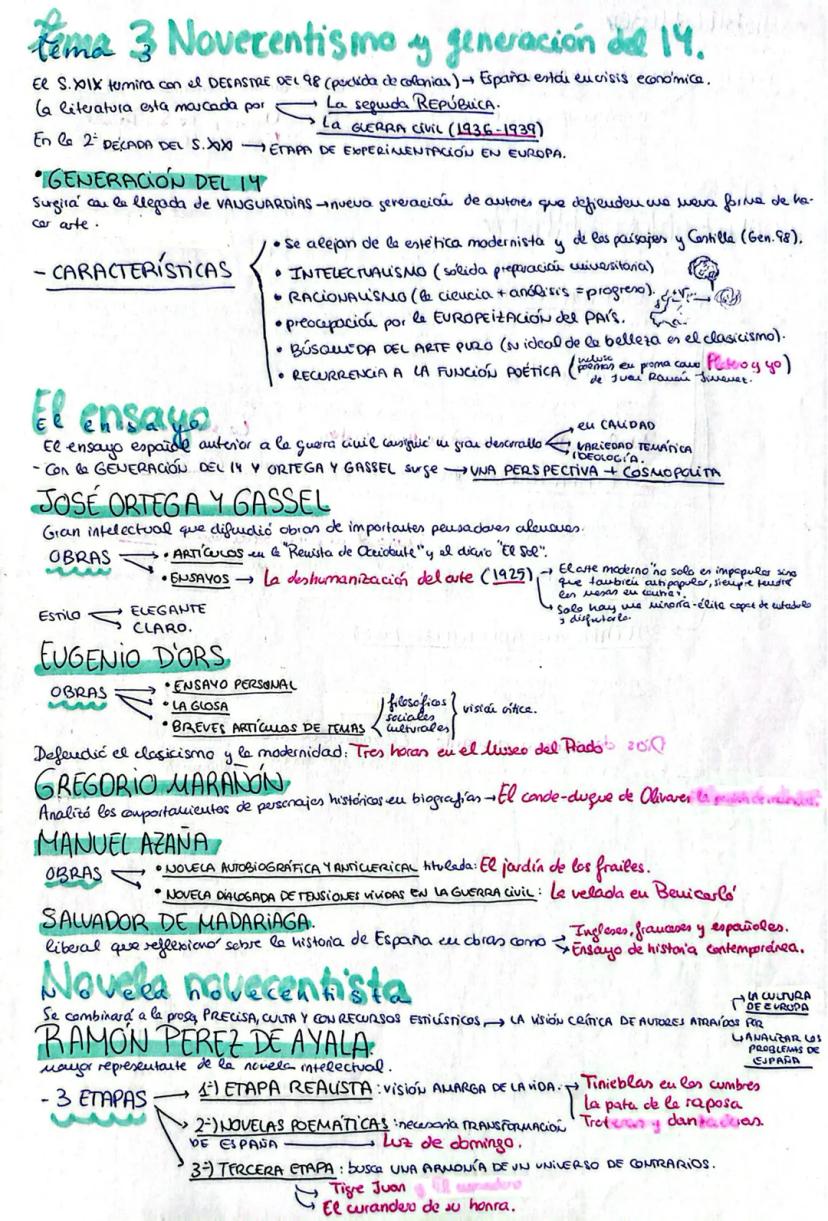 Tema 3 Novecentismo y generación del 14.
El S.XIX termina con el DESASTRE DEL 98 (perdida de colonias) → España está en crisis económica.
La literatura está marcada por → La segunda REPÚBLICA.
→ La GUERRA CIVIL (1936-1939)
En la 2ª DÉCADA DEL S.XX → ETAPA DE EXPERIMENTACIÓN EN EUROPA.
• GENERACIÓN DEL 14
Surgirá con la llegada de VANGUARDIAS → nueva generación de autores que defienden una nueva forma de ha-
cer arte.
- CARACTERÍSTICAS
• Se alejan de la estética modernista y de los paisajes y Castilla (Gen. 98).
• INTELECTUALISMO (solida preparación universitaria)
• RACIONALISMO (la ciencia + análisis = progreso).
• preocupación por la EUROPEIZACIÓN del PAÍS.
• BÚSQUEDA DEL ARTE PURO (su ideal de la belleza es el clasicismo).
• RECURRENCIA A LA FUNCIÓN POÉTICA (incluso poemas en prosa como Platero y yo)
de Juan Ramón Jimenez.
El ensayo
El ensayo español anterior a la guerra civil consiguió un gran desarrollo
en CALIDAD
VARIEDAD TEMÁTICA
IDEOLOGÍA.
- Con la GENERACIÓN DEL 14 Y ORTEGA Y GASSEL surge → UNA PERSPECTIVA + COSMOPOLITA
JOSÉ ORTEGA Y GASSEL
Gran intelectual que difundió obras de importantes pensadores alemanes.
OBRAS → • ARTÍCULOS en la "Revista de Occidente" y el diario "El Sol".
• ENSAYOS → La deshumanización del arte (1925)
→ El arte moderno "no solo es impopular sino
que también antipopular, siempre tendrá
las masas en contra".
→ Solo hay una minoría-élite capaz de entenderlo
y disfrutarlo.
ESTILO → ELEGANTE
→ CLARO.
EUGENIO D'ORS
OBRAS → • ENSAYO PERSONAL
• LA GLOSA
• BREVES ARTÍCULOS DE TEMAS
filosóficos
sociales
culturales
visión crítica.
Defendió el clasicismo y la modernidad: Tres horas en el Museo del Prado
GREGORIO MARAÑÓN
Analizó los comportamientos de personajes históricos en biografías → El conde-duque de Olivares
MANUEL AZAÑA
OBRAS → • NOVELA AUTOBIOGRÁFICA Y ANTICLERICAL titulada: El jardín de los frailes.
• NOVELA DIALOGADA DE TENSIONES VIVIDAS EN LA GUERRA CIVIL: La velada en Benicarló
SALVADOR DE MADARIAGA.
liberal que reflexionó sobre la historia de España en obras como → Ingleses, franceses y españoles.
→ Ensayo de historia contemporánea.
Novela novecentista
Se combinará a la prosa, PRECISA, CULTA Y CON RECURSOS ESTILÍSTICOS, → LA VISIÓN CRÍTICA DE AUTORES ATRAÍDOS POR
→ LA CULTURA
DE EUROPA
→ ANALIZAR LOS
PROBLEMAS DE
ESPAÑA
RAMÓN PEREZ DE AYALA.
mayor representante de la novela intelectual.
- 3 ETAPAS
1ª) ETAPA REALISTA: VISIÓN AMARGA DE LA VIDA. → Tinieblas en las cumbres
La pata de la raposa
Troteras y danzaderas.
2ª) NOVELAS POEMÁTICAS: necesaria TRANSFORMACIÓN
DE ESPAÑA → Luz de domingo.
3ª) TERCERA ETAPA: busca UNA ARMONÍA DE UN UNIVERSO DE CONTRARIOS.
→ Tigre Juan
→ El curandero de su honra.